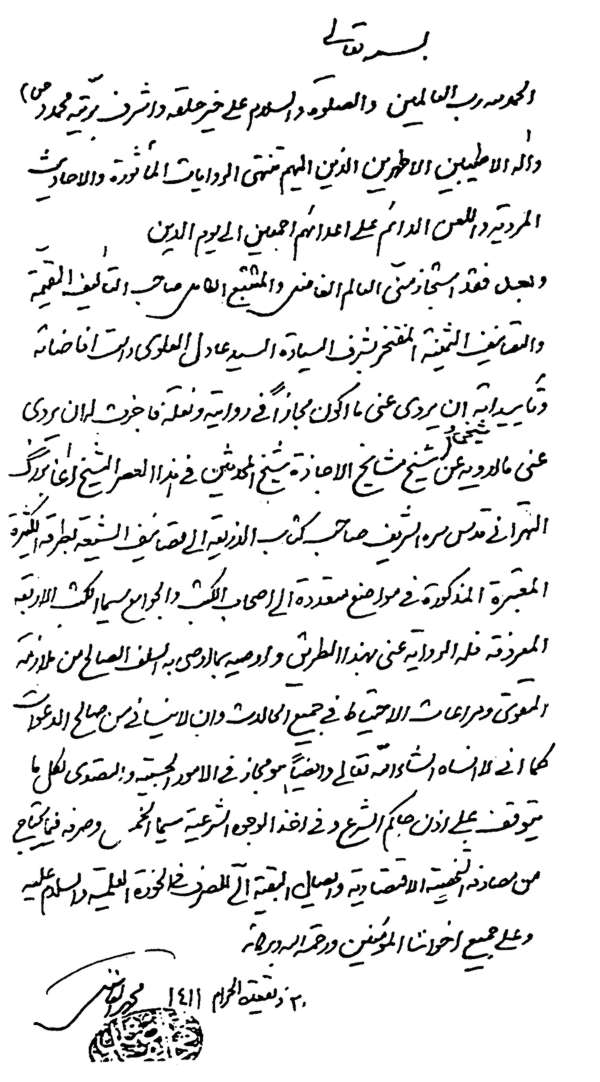 بسمه تعالى
الحمد لله رب العالمين والصلوة والسلام على خير خلقه واشرف بريته محمد (ص)
وآله الاطيبين الاطهرين الذين اليهم تنتهى الروايات المأثورة والاحاديث
المروية واللعن الدائم على اعدائهم اجمعين الى يوم الدين
وبعد فقد استجاز منّى العالم الفاضل والمتتبع الكامل صاحب التآليف القيّمة
والتصانيف الثمينة المفتخر بشرف السيادة السيد عادل العلوى دامت افاضاته
وتأييداته ان يروى عنى ما اكون مجازاً فى روايته ونقله فاجزت له ان يروى
عنى ما ارويه عن شيخنا و شيخ مشايخ الاجازة شيخ المحدثين فى هذا العصر الشيخ آغا بزرگ
الطهرانى قدس سره الشريف صاحب كتاب الذريعة الى تصانيف الشيعة بطرقه الكثيرة
المعتبرة المذكورة فى مواضع متعددة الى اصحاب الكتب والجوامع سيما الكتب الاربعة
المعروفة فله الرواية عنى بهذا الطريق واوصيه بما اوصى به السلف الصالح من ملازمة
التقوى ومراعات الاحتياط فى جميع الحالات وان لا ينسانى من صالح الدعوات
كما انى لا انساه انشاء الله تعالى وايضاً هو مجاز فى الامور الحسبية والتصدى لكل ما
يتوقف على اذن حاكم الشرع وفى اخذ الوجوه الشرعية سيما الخمس وصرفه فيما يحتاج
من مصارفه الشخصية الاقتصادية وايصال البقية الىّ للصرف فى الحوزة العلمية والسلام عليه
وعلى جميع اخواننا المؤمنين ورحمة الله وبركاته
٢٠ ذيقعدة الحرام ١٤١١